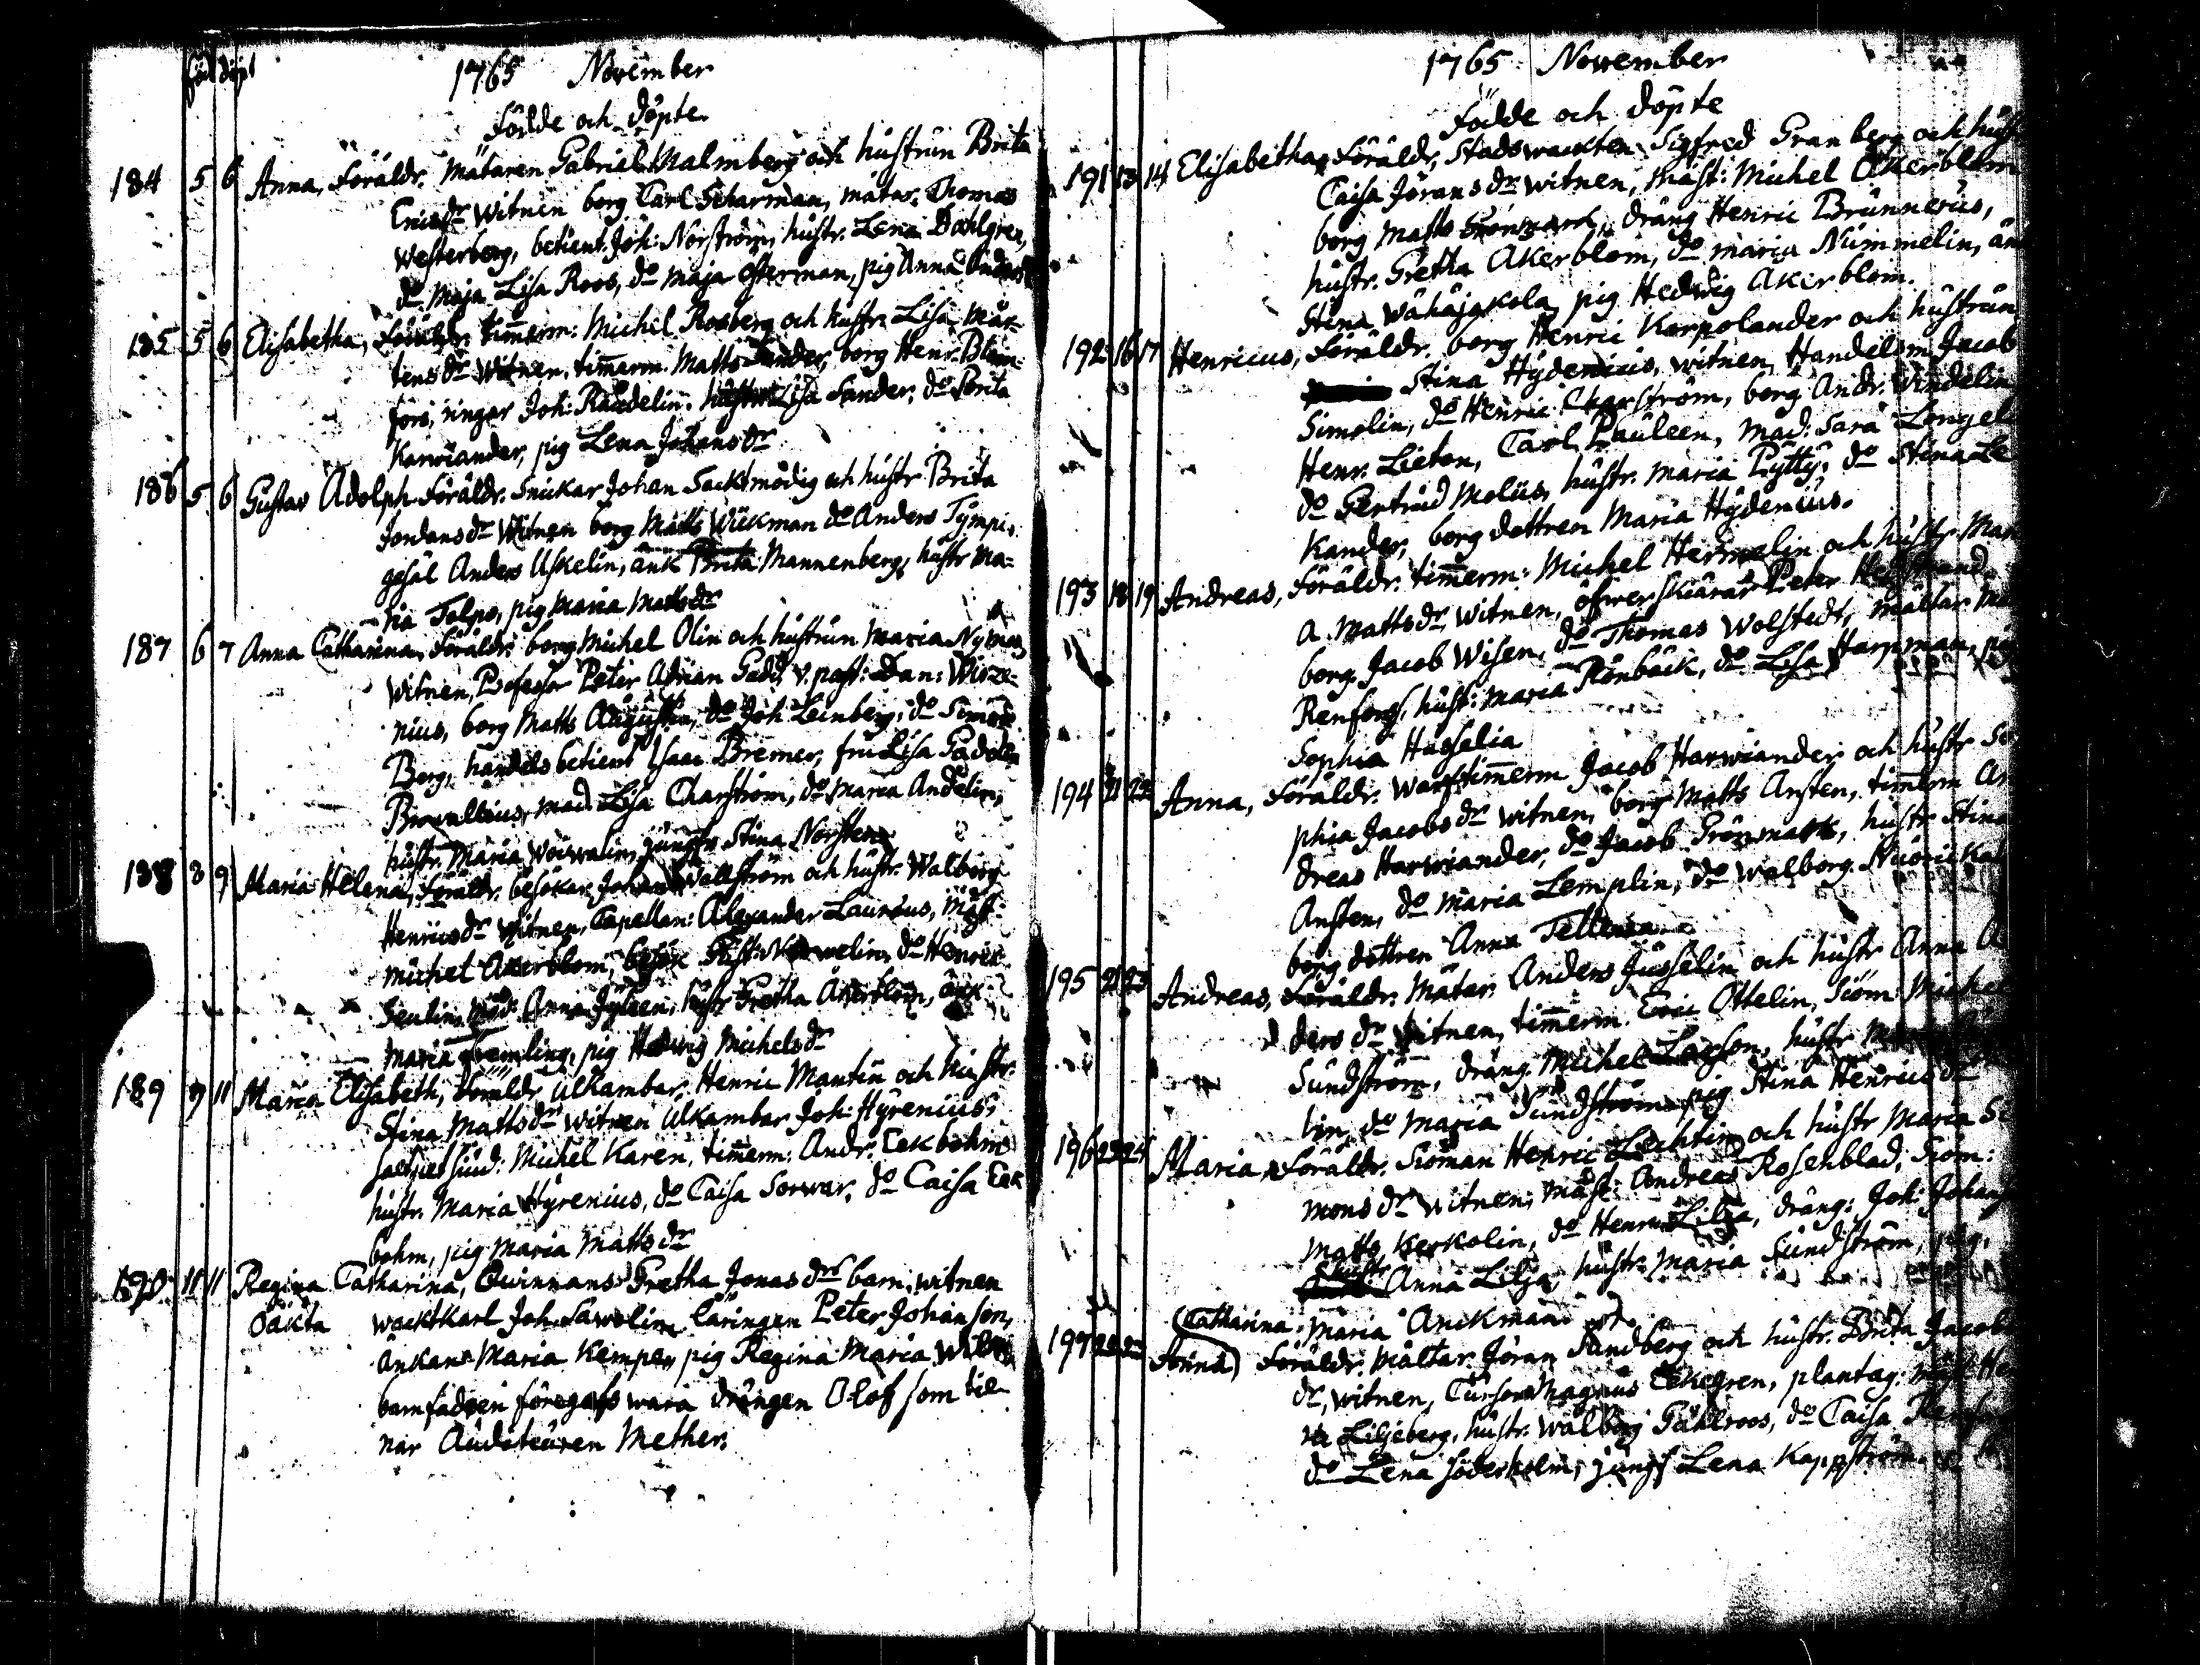 född döpt
1765 November
Födde och döpte
184 5 6 Anna, Föräldr. Mätaren Gabriel Malmberg och hustrun Brita
Ericsdr witnen borg Carl Scharman, mätar. Thomas
Westerberg, betient. Joh: Norström, hustr. Lena Dahlgren,
do Maja Lisa Roos, do Maja Österman, pig Anna
185 5 6 Elisabetha, Föräldr. timmerm: Michel Rosberg och hustr. Lisa Mår-
tensdr witnen, timmerm. Matts Sander, borg Henr. Blom-
fors, ringar Joh: Randelin. hustr Lisa Sander, do Brita
Karwiander, pig Lena Johansdr
186 5 6 Gustav Adolph Föräldr. Snickar Johan Sacktmodig och hustr Brita
Jordansdr Witnen borg Matts Wickman do Anders Tympi,
gesäl Anders Uskelin, änk Brita Mannenberg, hustr Ma-
ria Talpo, pig Maria Mattsdr
187 6 7 Anna Catharina, Föräldr. borg Michel Olin och hustrun Maria Nyman
witnen, Professor Peter Adrian Gadd, v. past: Dan: Wire-
nius, borg Matts Augustin, do Joh Leinberg, do Simon
Berg, handels betient Isaac Bremer, fru Lisa Gadolin
mad Lisa Charström, do Maria Andelin,
hustr. Maria jungfr Stina Norsten
188 8 9 Maria Helena, Föräldr. besökar Johan Wallström och hustr. Walborg
Henricsdr witnen, Capellan: Alexander Laurœus, mäst:
Michel Åkerblom, do Henric
Seulin, mad: Anna hustr Gretha Åkerblom, änk
Maria Fremling, pig Hedwig Michelsdr
189 9 11 Maria Elisabeth, Föräldr. Ulkambar Henric Mantin och hustr.
Stina Mattsdr witnen Ulkambar Joh: Hyrenius,
Michel Karen, timmerm: Andr. Eekbohm
hustr. Maria Hyrenius, do Caisa Sorwar, do Caisa Eek
bohm, pig Maria Mattsdr
190 11 11 Regina Catharina, Qwinnans Gretha Jonasdrs barn, witnen
Oäkta wacktkarl Joh. Sawolin, läringen Peter Johanson,
änkan Maria Kempe, pig Regina Maria
barnfadren föregafs wara drängen Olof som tie-
nar Auditeuren Mether.
1765 November
Födde och döpte
191 13 14 Elisabetha, Föräldr, Stadswackten Sigfred Granberg och hust
Caisa Jöransdr, witnen, mäst: Michel Åkerblom
borg Matts dräng Henric Brunnerus,
hustr. Gretha Åkerblom, do Maria Nummelin, än
Stina Wähäjakola, pig Hedwig Åkerblom.
192 16 17 Henricus, Föräldr. borg Henric Korpolander och hustrun
Stina Hydenius, witnen, Handelsm Jacob
Simolin, do Henric Charström, borg Andr. Windelin
Henr. Lieton, Carl Pauleen, mad: Sara Lengel
do Gertrud Molius, hustr. Maria Pytty, do Stina Le
kander, borg dottren Maria Hydenius.
193 18 19 Andreas, Föräldr. timmerm: Michel Hermelin och hustr Mar
a. Mattsdr, witnen, öfwerskiärar Peter
borg Jacob Wisen, do Thomas Wolstedt, mältar
Renfors, hust: Maria Rönbäck, do Lisa Harpman,
Sophia Hasselia
194 21 22 Anna, Föräldr. warfstimmerm Jacob Harwiander och hustr So
phia Jacobsdr witnen, borg Matts Ansten, timmerm An
dreas Harwiander, do Jacob Grönmark, hustr Stina
Ansten, do Maria Lemplin, do Walborg
borg dottren Anna
195 21 23 Andreas, Föräldr. Mätar. Anders Jusselin och hustr Anna A
ders dr witnen, timmerm. Eric Ottelin, Siöm Michel
Sundström, dräng Michel hustr
lin, do Maria Sundström pig Stina Henricsdr
196 23 24 Maria, Föräldr. Siöman Henric Lechtin och hustr Maria Si
monsdr witnen, mäst: Andreas Rosenblad, Siöm:
Matts Kerkolin, do Henric Lilja, dräng: Joh: Johans
hustr Anna Lilja, hustr: Maria Sundström, pig,
Maria Anckman
197 Catharina
Föräldr. mältar Jöran Sandberg och hustr. Brita Jacobs
dr, witnen, Cursor Magnus Ekegren, plantag: mäst He
Liljeberg, hustr. Walborg Gåhlroos, do Caisa
do Lena Söderholm, jungf Lena Kappström